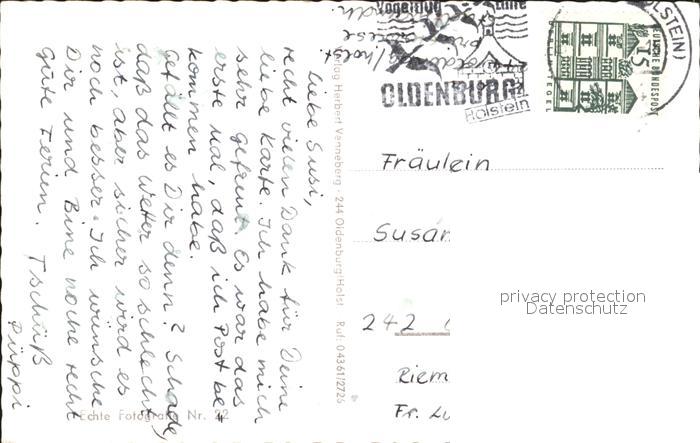 Liebe Susi,
recht vielen Dank für Deine
liebe Karte. Ich habe mich
sehr gefreut. Es war das
erste Mal, daß ich Post be=
kommen habe.
gefällt es Dir denn? Schade,
daß das Wetter so schlecht
ist, aber sicher wird es
noch besser. Ich wünsche
Dir und Bine noch recht
gute Ferien. Tschüß
Püppi
Echte Fotografie Nr. 22
Verlag Herbert Venneberg · 244 Oldenburg/Holst · Ruf: 04361/2726
Vogelflug Linie
OLDENBURG
Holstein
HOLSTEIN)
DEUTSCHE BUNDESPOST
15
TEGEL
Fräulein
Susan
242
Riem
Fr. Lu
privacy protection
Datenschutz